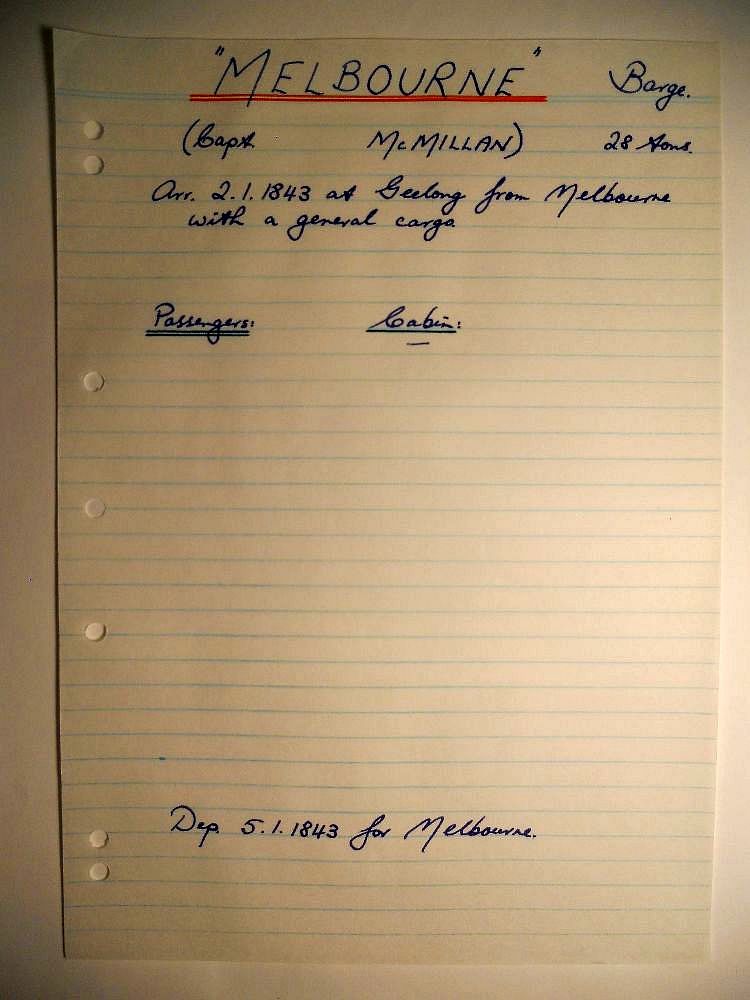 "MELBOURNE" Barge.
(Capt McMILLAN) 28 tons.
Arr. 2.1.1843 at Geelong from Melbourne
with a general cargo
Passengers: Cabin:
—
Dep. 5.1.1843 for Melbourne.